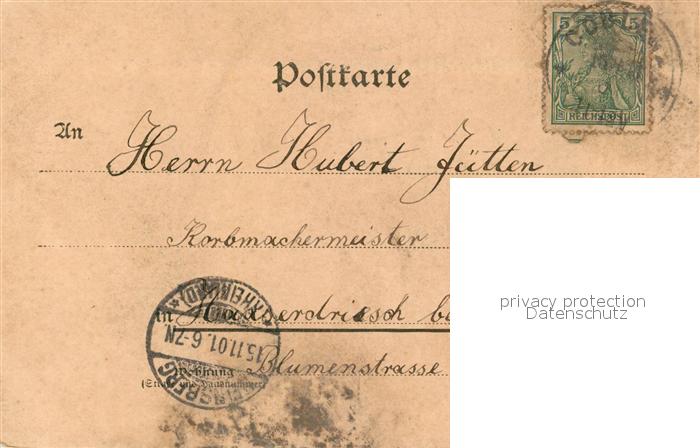 Postkarte
5 5
REICHSPOST
An
Herrn Hubert Jütten
Korbmachermeister
in Haaserdriesch b
15.11.01.6-7N
(RHEINLAND)
Wohnung Blumenstrasse
(Straße und Hausnummer)
privacy protection
Datenschutz